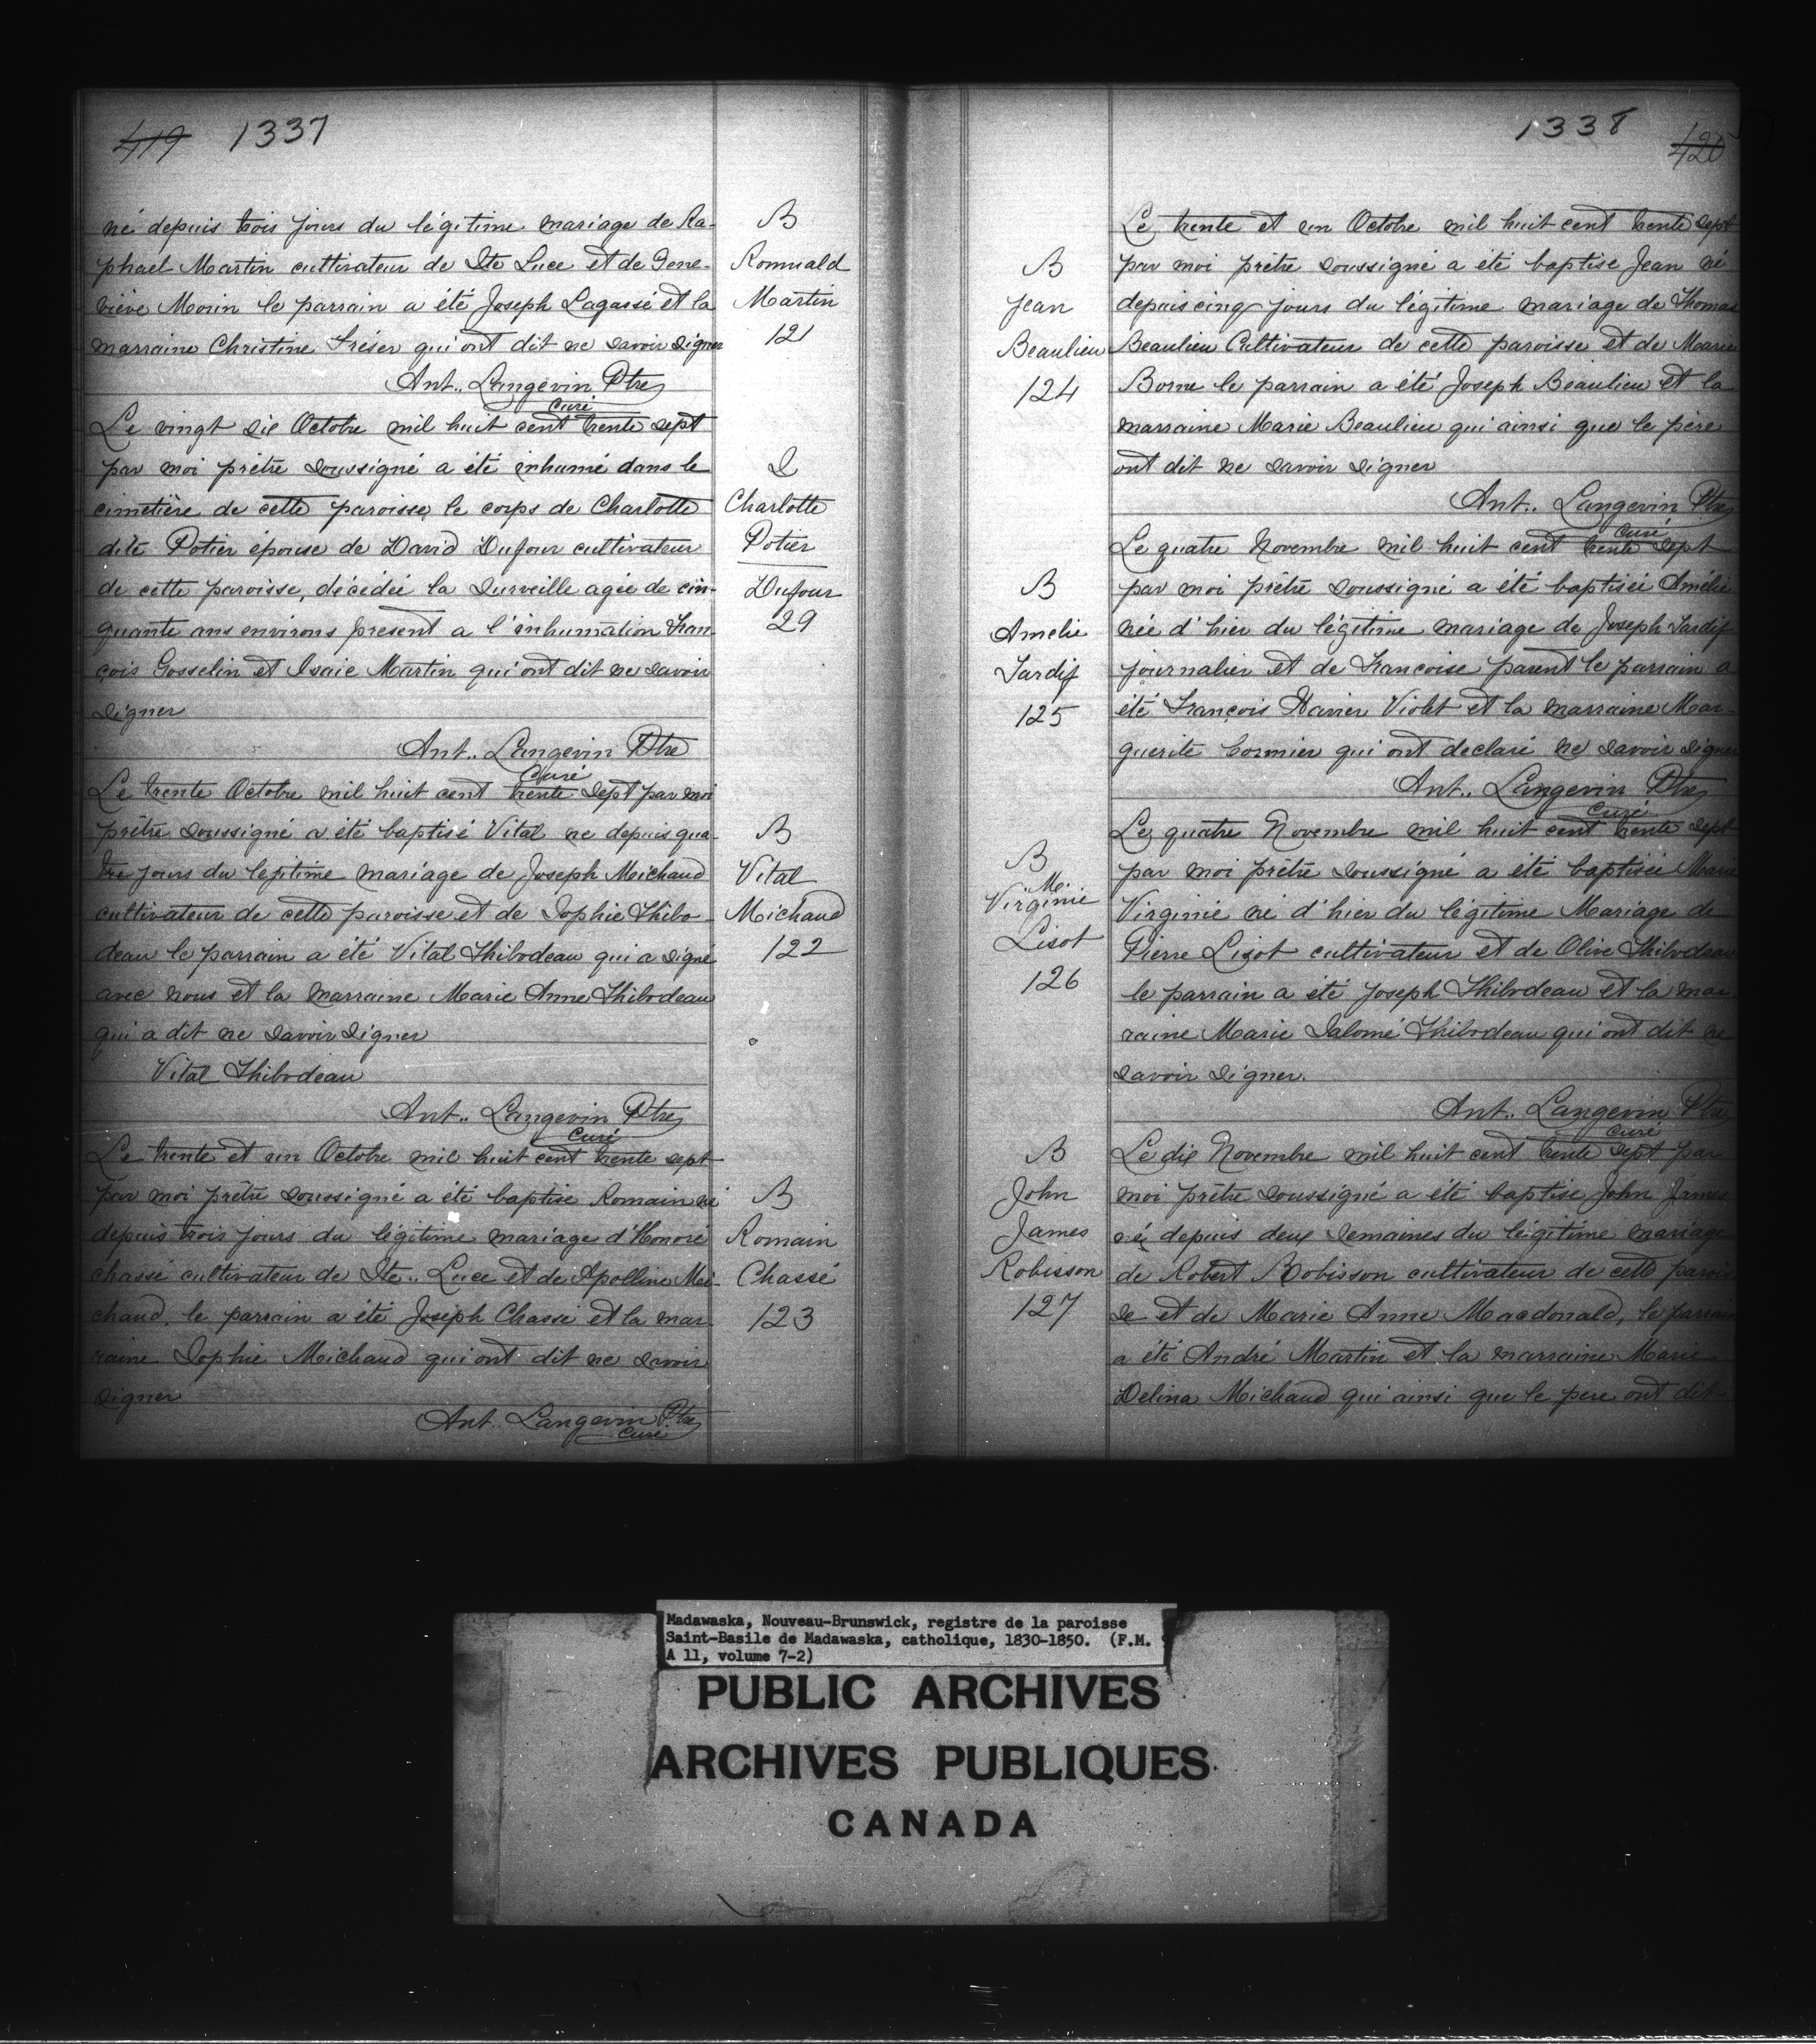 419 1337
né depuis trois jours du légitime mariage de Ra-
phael Martin cultivateur de Ste Luce et de Gene-
viève Morin le parrain a été Joseph Lagassé et la
marraine Christine Fréser qui ont dit ne savoir signer
Ant.. Langevin Ptre
curé
B
Romuald
Martin
121
Le vingt six Octobre mil huit cent trente sept
par moi prêtre soussigné a été inhumé dans le
cimetière de cette paroisse, le corps de Charlotte
dite Potier épouse de David Dufour cultivateur
de cette paroisse, décédée la surveille agée de cin-
quante ans environs présent a l'inhumation Fran
çois Gosselin et Isaie Martin qui ont dit ne savoir
signer
Ant.. Langevin Ptre
Curé
S
Charlotte
Potier
Dufour
29
Le trente Octobre mil huit cent trente sept par moi
prêtre soussigné a été baptisé Vital né depuis qua-
tre jours du legitime mariage de Joseph Michaud
cultivateur de cette paroisse et de Sophie Thibo-
deau le parrain a été Vital Thibodeau qui a signé
avec nous et la marraine Marie Anne Thibodeau
qui a dit ne savoir signer
Vital Thibodeau
Ant.. Langevin Ptre
Curé
B
Vital
Michaud
122
Le trente et un Octobre mil huit cent trente sept
par moi prêtre soussigné a été baptise Romain né
depuis trois jours du légitime mariage d'Honoré
chassé cultivateur de Ste.. Luce et de Apolline Mi-
chaud, le parrain a été Joseph Chassé et la mar
raine Sophie Michaud qui ont dit ne savoir
signer
Ant.. Langevin Ptre
Curé
B
Romain
Chassé
123
1338 420
Le trente et un Octobre mil huit cent trente sept
par moi prêtre soussigné a été baptise Jean né
depuis cinq jours du légitime mariage de Thomas
Beaulieu Cultivateur de cette paroisse et de Marie
Borne le parrain a été Joseph Beaulieu et la
marraine Marie Beaulieu qui ainsi que le père
ont dit ne savoir signer
Ant.. Langevin Ptre
Curé
B
Jean
Beaulieu
124
Le quatre Novembre mil huit cent trente sept
par moi prêtre soussigné a été baptisée Amélie
née d'hier du légitime mariage de Joseph Tardif
journalier et de Françoise parent le parrain a
été François Xavier Violet et la marraine Mar
guerite Cormier qui ont declaré ne savoir signer
Ant.. Langevin Ptre
Curé
B
Amelie
Tardif
125
Le quatre Novembre mil huit cent trente sept
par moi prêtre soussigné a été baptisée Marie
Virginie né d'hier du légitime Mariage de
Pierre Lizot cultivateur et de Olive Thibodeau
le parrain a été Joseph Thibodeau et la mar
raine Marie Salomé Thibodeau qui ont dit ne
savoir signer.
Ant.. Langevin Ptre
curé
B
M.
Virginie
Lisot
126
Le dix Novembre mil huit cent trente sept par
moi prêtre soussigné a été baptise John James
né depuis deux semaines du légitime mariage
de Robert Robisson cultivateur de cette parois
se et de Marie Anne Macdonald, le parrain
a été André Martin et la marraine Marie
Delina Michaud qui ainsi que le pere ont dit
B
John
James
Robisson
127
Madawaska, Nouveau-Brunswick, registre de la paroisse
Saint-Basile de Madawaska, catholique, 1830-1850. (F.M. 9
A 11, volume 7-2)
PUBLIC ARCHIVES
ARCHIVES PUBLIQUES
CANADA